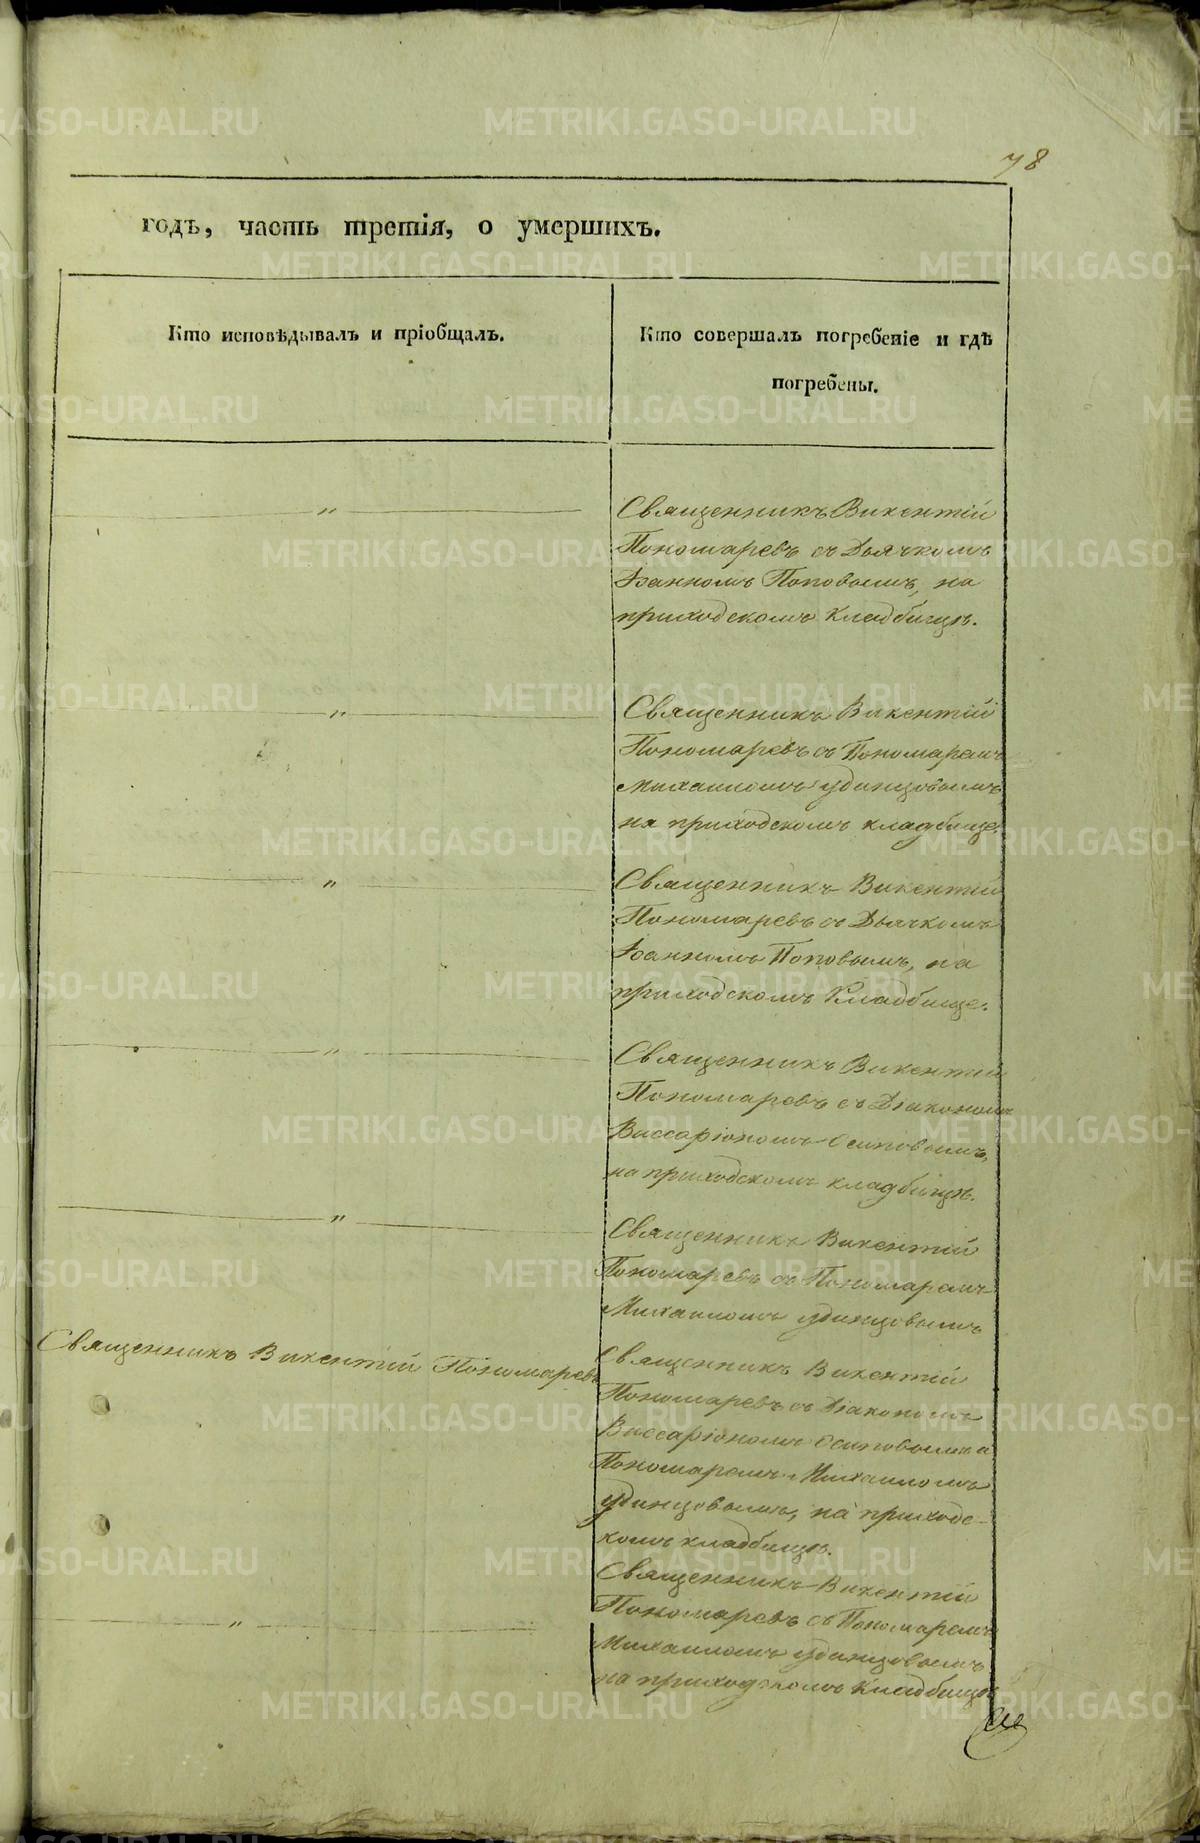 78
годъ, часть третія, о умершихъ.
Кто исповѣдывалъ и пріобщалъ.
Кто совершалъ погребеніе и гдѣ
погребены.
Священникъ Викентій
Пономаревъ съ Дьячкомъ
Іоанномъ Поповымъ, на
приходскомъ кладбищѣ.
Священникъ Викентій
Пономаревъ съ Пономаремъ
Михаиломъ Удинцовымъ
на приходскомъ кладбище.
Священникъ Викентій
Пономаревъ съ Дьячкомъ
Іоанномъ Поповымъ, на
приходскомъ кладбище.
Священникъ Викентій
Пономаревъ съ Діакономъ
Виссаріономъ Осиповымъ,
на приходскомъ кладбищѣ.
Священникъ Викентій
Пономаревъ съ Пономаремъ
Михаиломъ Удинцовымъ
Священникъ Викентій Пономаревъ
Священникъ Викентій
Пономаревъ съ Діакономъ
Виссаріономъ Осиповымъ и
Пономаремъ Михаиломъ
Удинцовымъ, на приходс-
комъ кладбищѣ.
Священникъ Викентій
Пономаревъ съ Пономаремъ
Михаиломъ Удинцовымъ
на приходскомъ кладбищѣ
METRIKI.GASO-URAL.RU